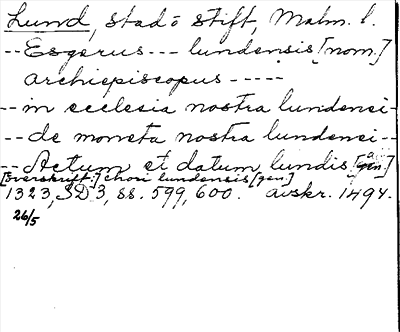 Lund, stad ō stift, Malm. l.
-- Esgerus --- lundensis [nom.]
archiepiscopus -----
-- in ecclesia nostra lundensi -
-- de moneta nostra lundensi --
-- Actum et datum lundis [gen.]
[överskrift:] chori lundensis [gen.]
1323, SD 3, ss. 599, 600. avskr. 1494.
26/5